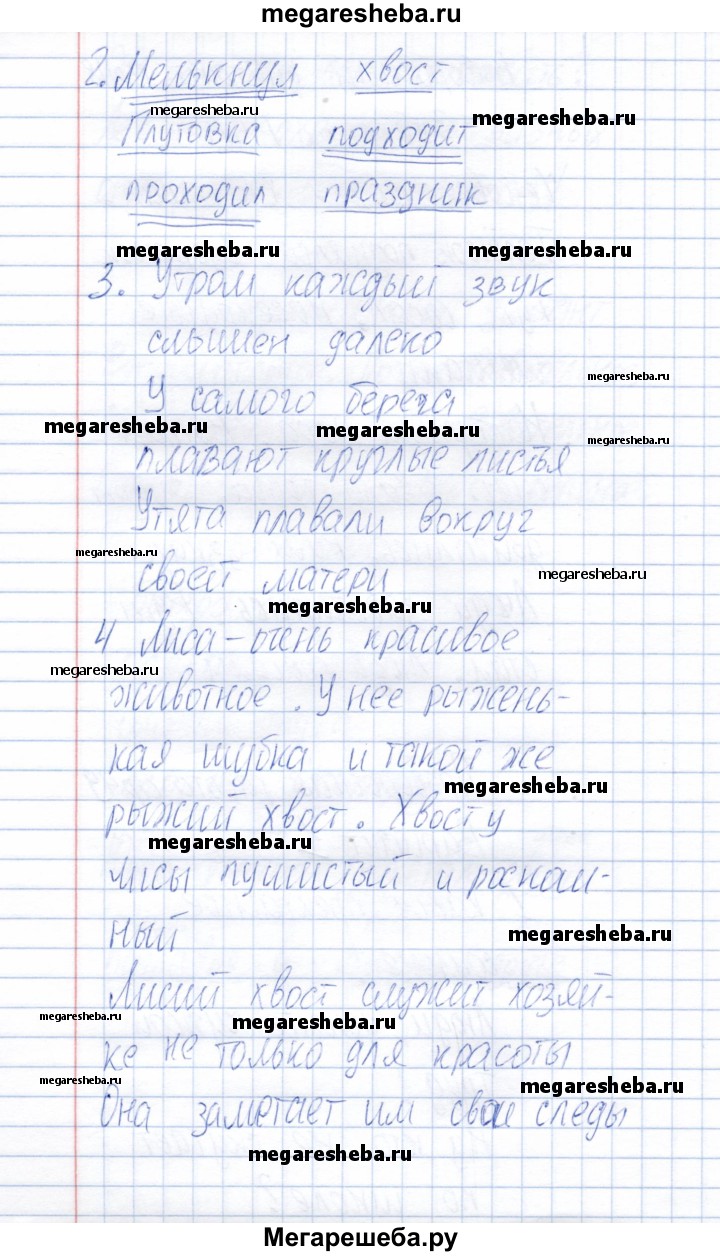 megaresheba.ru
2. Мелькнул хвост
megaresheba.ru
megaresheba.ru
Плутовка подходит
проходил праздник
megaresheba.ru megaresheba.ru
3. Утром каждый звук
слышен далеко
megaresheba.ru
У самого берега
megaresheba.ru megaresheba.ru
megaresheba.ru
плавают круглые листья
Утята плавали вокруг
megaresheba.ru
своей матери
megaresheba.ru
megaresheba.ru
4 Лиса – очень красивое
megaresheba.ru
животное. У нее рыжень-
кая шубка и такой же
megaresheba.ru
рыжий хвост. Хвост у
megaresheba.ru
лисы пушистый и роскош-
ный
megaresheba.ru
Лисий хвост служит хозяй-
megaresheba.ru
megaresheba.ru
ке не только для красоты
megaresheba.ru
megaresheba.ru
Она заметает им свои следы
megaresheba.ru
Мегарешеба.ру